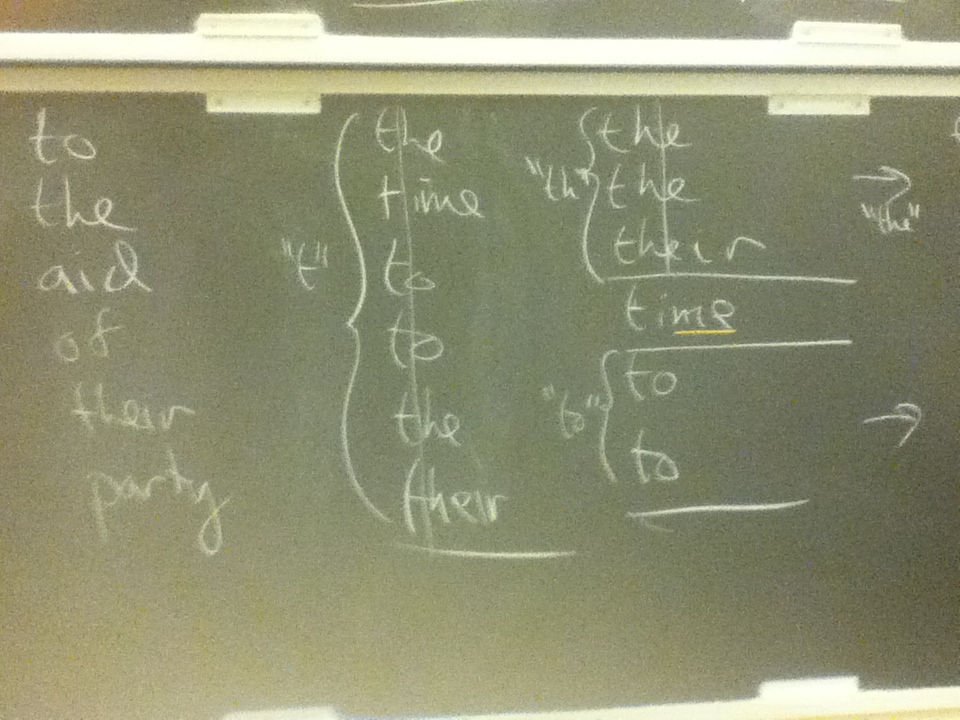 to
the
aid
of
their
party
"t"
the
time
to
to
the
their
"th"
the
the
their
time
"to"
to
to
→
"the"
→